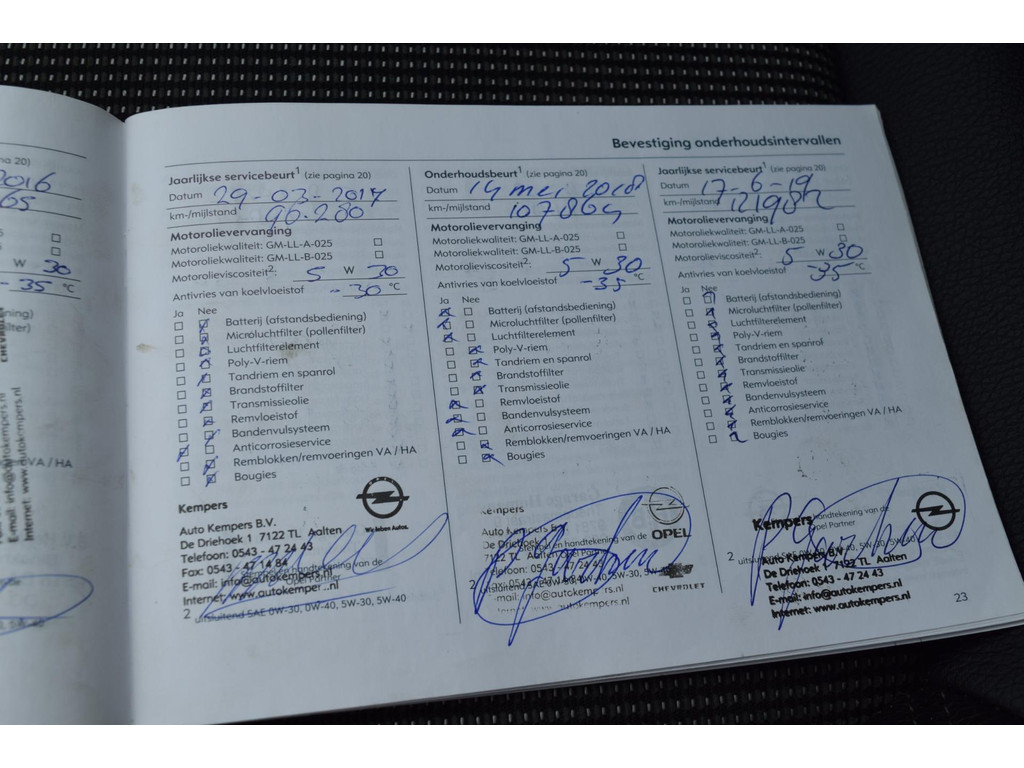 Bevestiging onderhoudsintervallen
ina 20)
2016
65
W 30
-35 °C
ning)
ilter)
CHEVROLET
VA / HA
E-mail: info@autokempers.nl
Internet: www.autokempers.nl
Jaarlijkse servicebeurt1 (zie pagina 20)
Datum 29-03-2017
km-/mijlstand 96.280
Motorolievervanging
Motoroliekwaliteit: GM-LL-A-025
Motoroliekwaliteit: GM-LL-B-025
Motorolieviscositeit2: 5 W 30
Antivries van koelvloeistof -30 °C
Ja Nee
Batterij (afstandsbediening)
Microluchtfilter (pollenfilter)
Luchtfilterelement
Poly-V-riem
Tandriem en spanrol
Brandstoffilter
Transmissieolie
Remvloeistof
Bandenvulsysteem
Anticorrosieservice
Remblokken/remvoeringen VA / HA
Bougies
Kempers
Auto Kempers B.V.
We leben Autos.
De Driehoek 1 7122 TL Aalten
Telefoon: 0543 - 47 24 43
Fax: 0543 - 47 14 84
handtekening van de
E-mail: info@autokemper .nl
Opel Partner
Internet: www.autokemper .nl
2 uitsluitend SAE 0W-30, 0W-40, 5W-30, 5W-40
Onderhoudsbeurt1 (zie pagina 20)
Datum 14 mei 2018
km-/mijlstand 107864
Motorolievervanging
Motoroliekwaliteit: GM-LL-A-025
Motoroliekwaliteit: GM-LL-B-025
Motorolieviscositeit2: 5 W 30
Antivries van koelvloeistof -35 °C
Ja Nee
Batterij (afstandsbediening)
Microluchtfilter (pollenfilter)
Luchtfilterelement
Poly-V-riem
Tandriem en spanrol
Brandstoffilter
Transmissieolie
Remvloeistof
Bandenvulsysteem
Anticorrosieservice
Remblokken/remvoeringen VA / HA
Bougies
Kempers
Auto Kempers B.V.
OPEL
Stempel en handtekening van de
7122 TL Aalten
CHEVROLET
2 uitsluitend
Jaarlijkse servicebeurt1 (zie pagina 20)
Datum 17-6-19
km-/mijlstand
Motorolievervanging
Motoroliekwaliteit: GM-LL-A-025
Motoroliekwaliteit: GM-LL-B-025
Motorolieviscositeit2: 5 W 30
Antivries van koelvloeistof -35 °C
Ja Nee
Batterij (afstandsbediening)
Microluchtfilter (pollenfilter)
Luchtfilterelement
Poly-V-riem
Tandriem en spanrol
Brandstoffilter
Transmissieolie
Remvloeistof
Bandenvulsysteem
Anticorrosieservice
Remblokken/remvoeringen VA / HA
Bougies
Kempers
handtekening van de
Opel Partner
Auto Kempers B.V.
2 uitsluitend
De Driehoek 1 7122 TL Aalten
Telefoon: 0543 - 47 24 43
E-mail: info@autokempers.nl
Internet: www.autokempers.nl
23